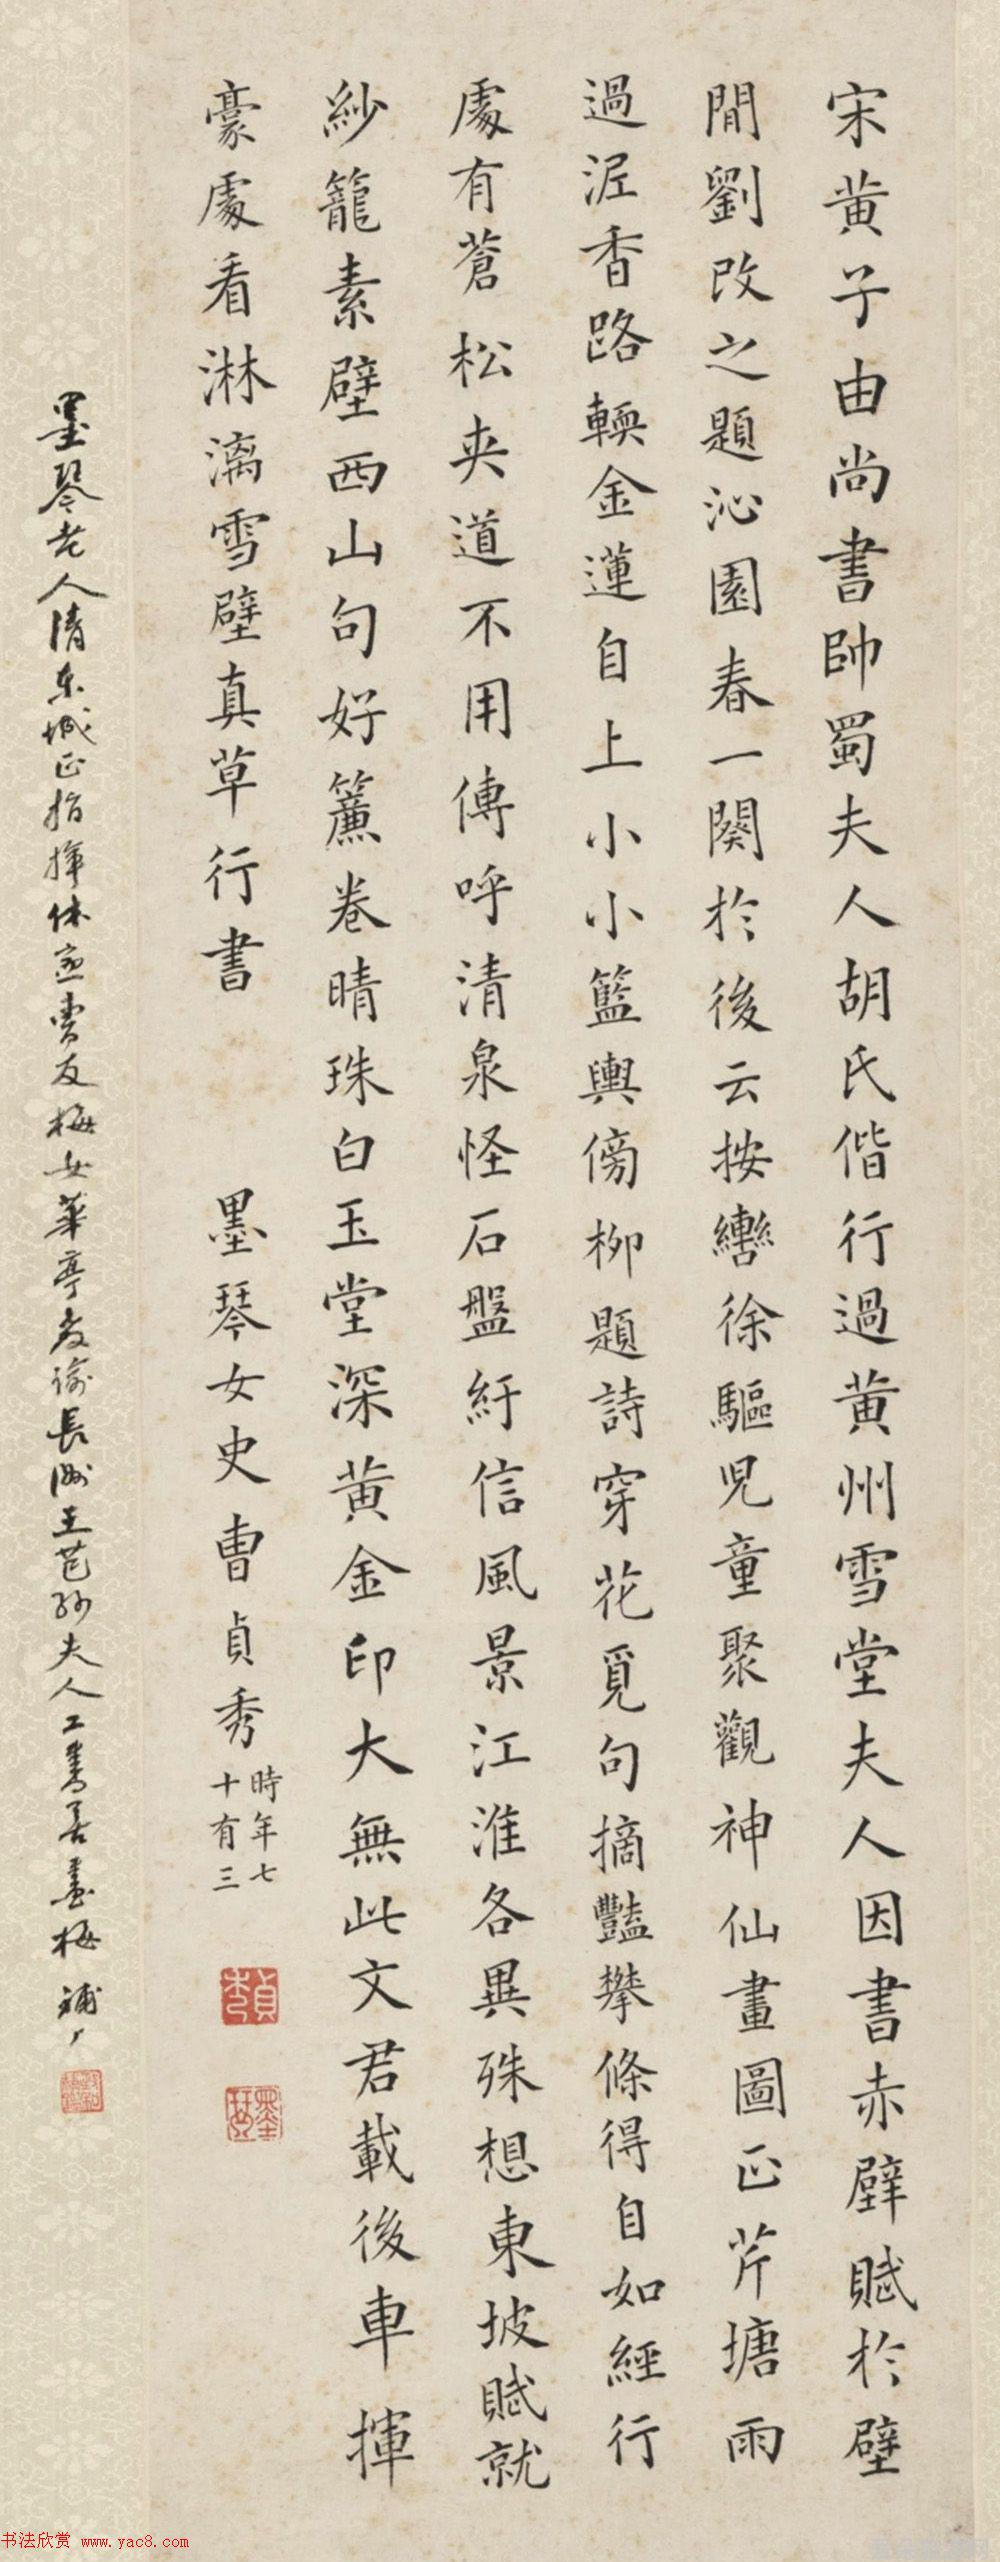 宋黄子由尚書帥蜀夫人胡氏偕行過黄州雪堂夫人因書赤壁賦於壁
間劉改之題沁園春一闋於後云按轡徐驅兒童聚觀神仙畫圖正芹塘雨
過泥香路輭金蓮自上小小籃輿傍柳題詩穿花覓句摘豔攀條得自如經行
處有蒼松夾道不用傳呼清泉怪石盤紆信風景江淮各異殊想東坡賦就
紗籠素壁西山句好簾卷晴珠白玉堂深黄金印大無此文君載後車揮
豪處看淋漓雪壁真草行書
墨琴女史曹貞秀
時年七
十有三
貞秀
墨琴
墨琴老人清東城正指揮休寧曹友梅女華亭教諭長洲王芑孫夫人工書善畫梅
書法欣賞 www.yac8.com